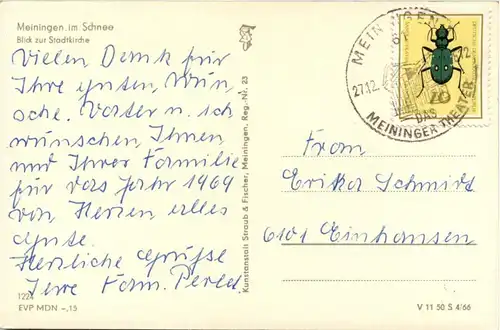 Meiningen im Schnee
Blick zur Stadtkirche
Vielen Dank für
Ihre guten Wün-
sche. Vater u. ich
wünschen Ihnen
und Ihrer Familie
für das Jahr 1969
von Herzen alles
gute.
Herzliche Grüße
Ihre Fam.
1224
EVP MDN –,15
Kunstanstalt Straub & Fischer, Meiningen, Reg.-Nr. 23
MEININGEN
27.12.
DAS
MEININGER THEATER
10
Frau
Erika Schmidt
6101 Einhausen
V 11 50 S 4/66